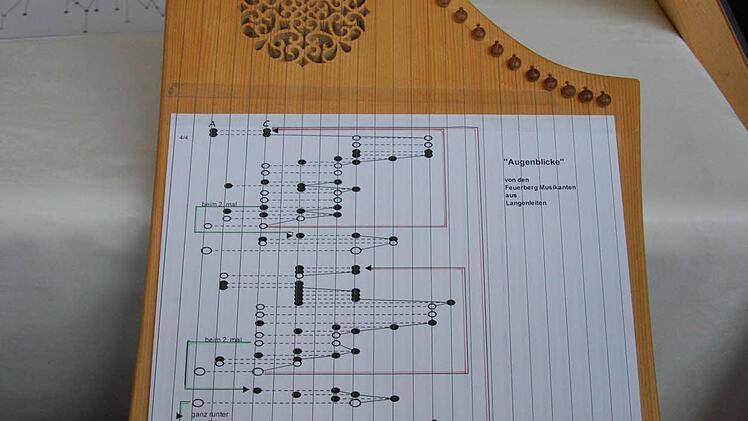 A C
4/4
"Augenblicke"
von den
Feuerberg Musikanten
aus
Langenleiten
beim 2. mal
beim 2. mal
ganz runter